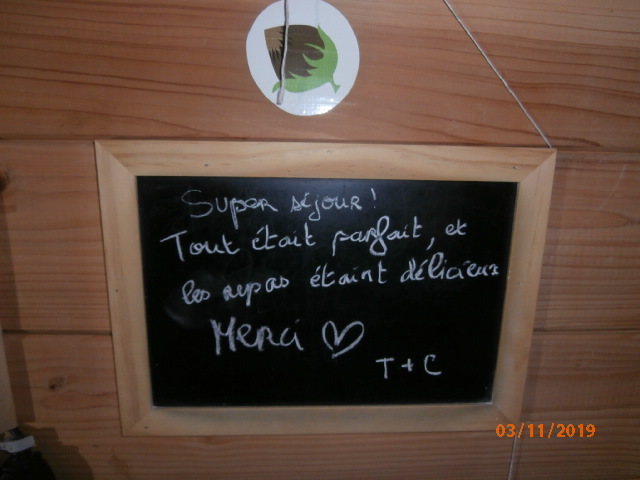 Super séjour !
Tout était parfait, et
les repas étaint délicieux
Merci ♡
T + C
03/11/2019